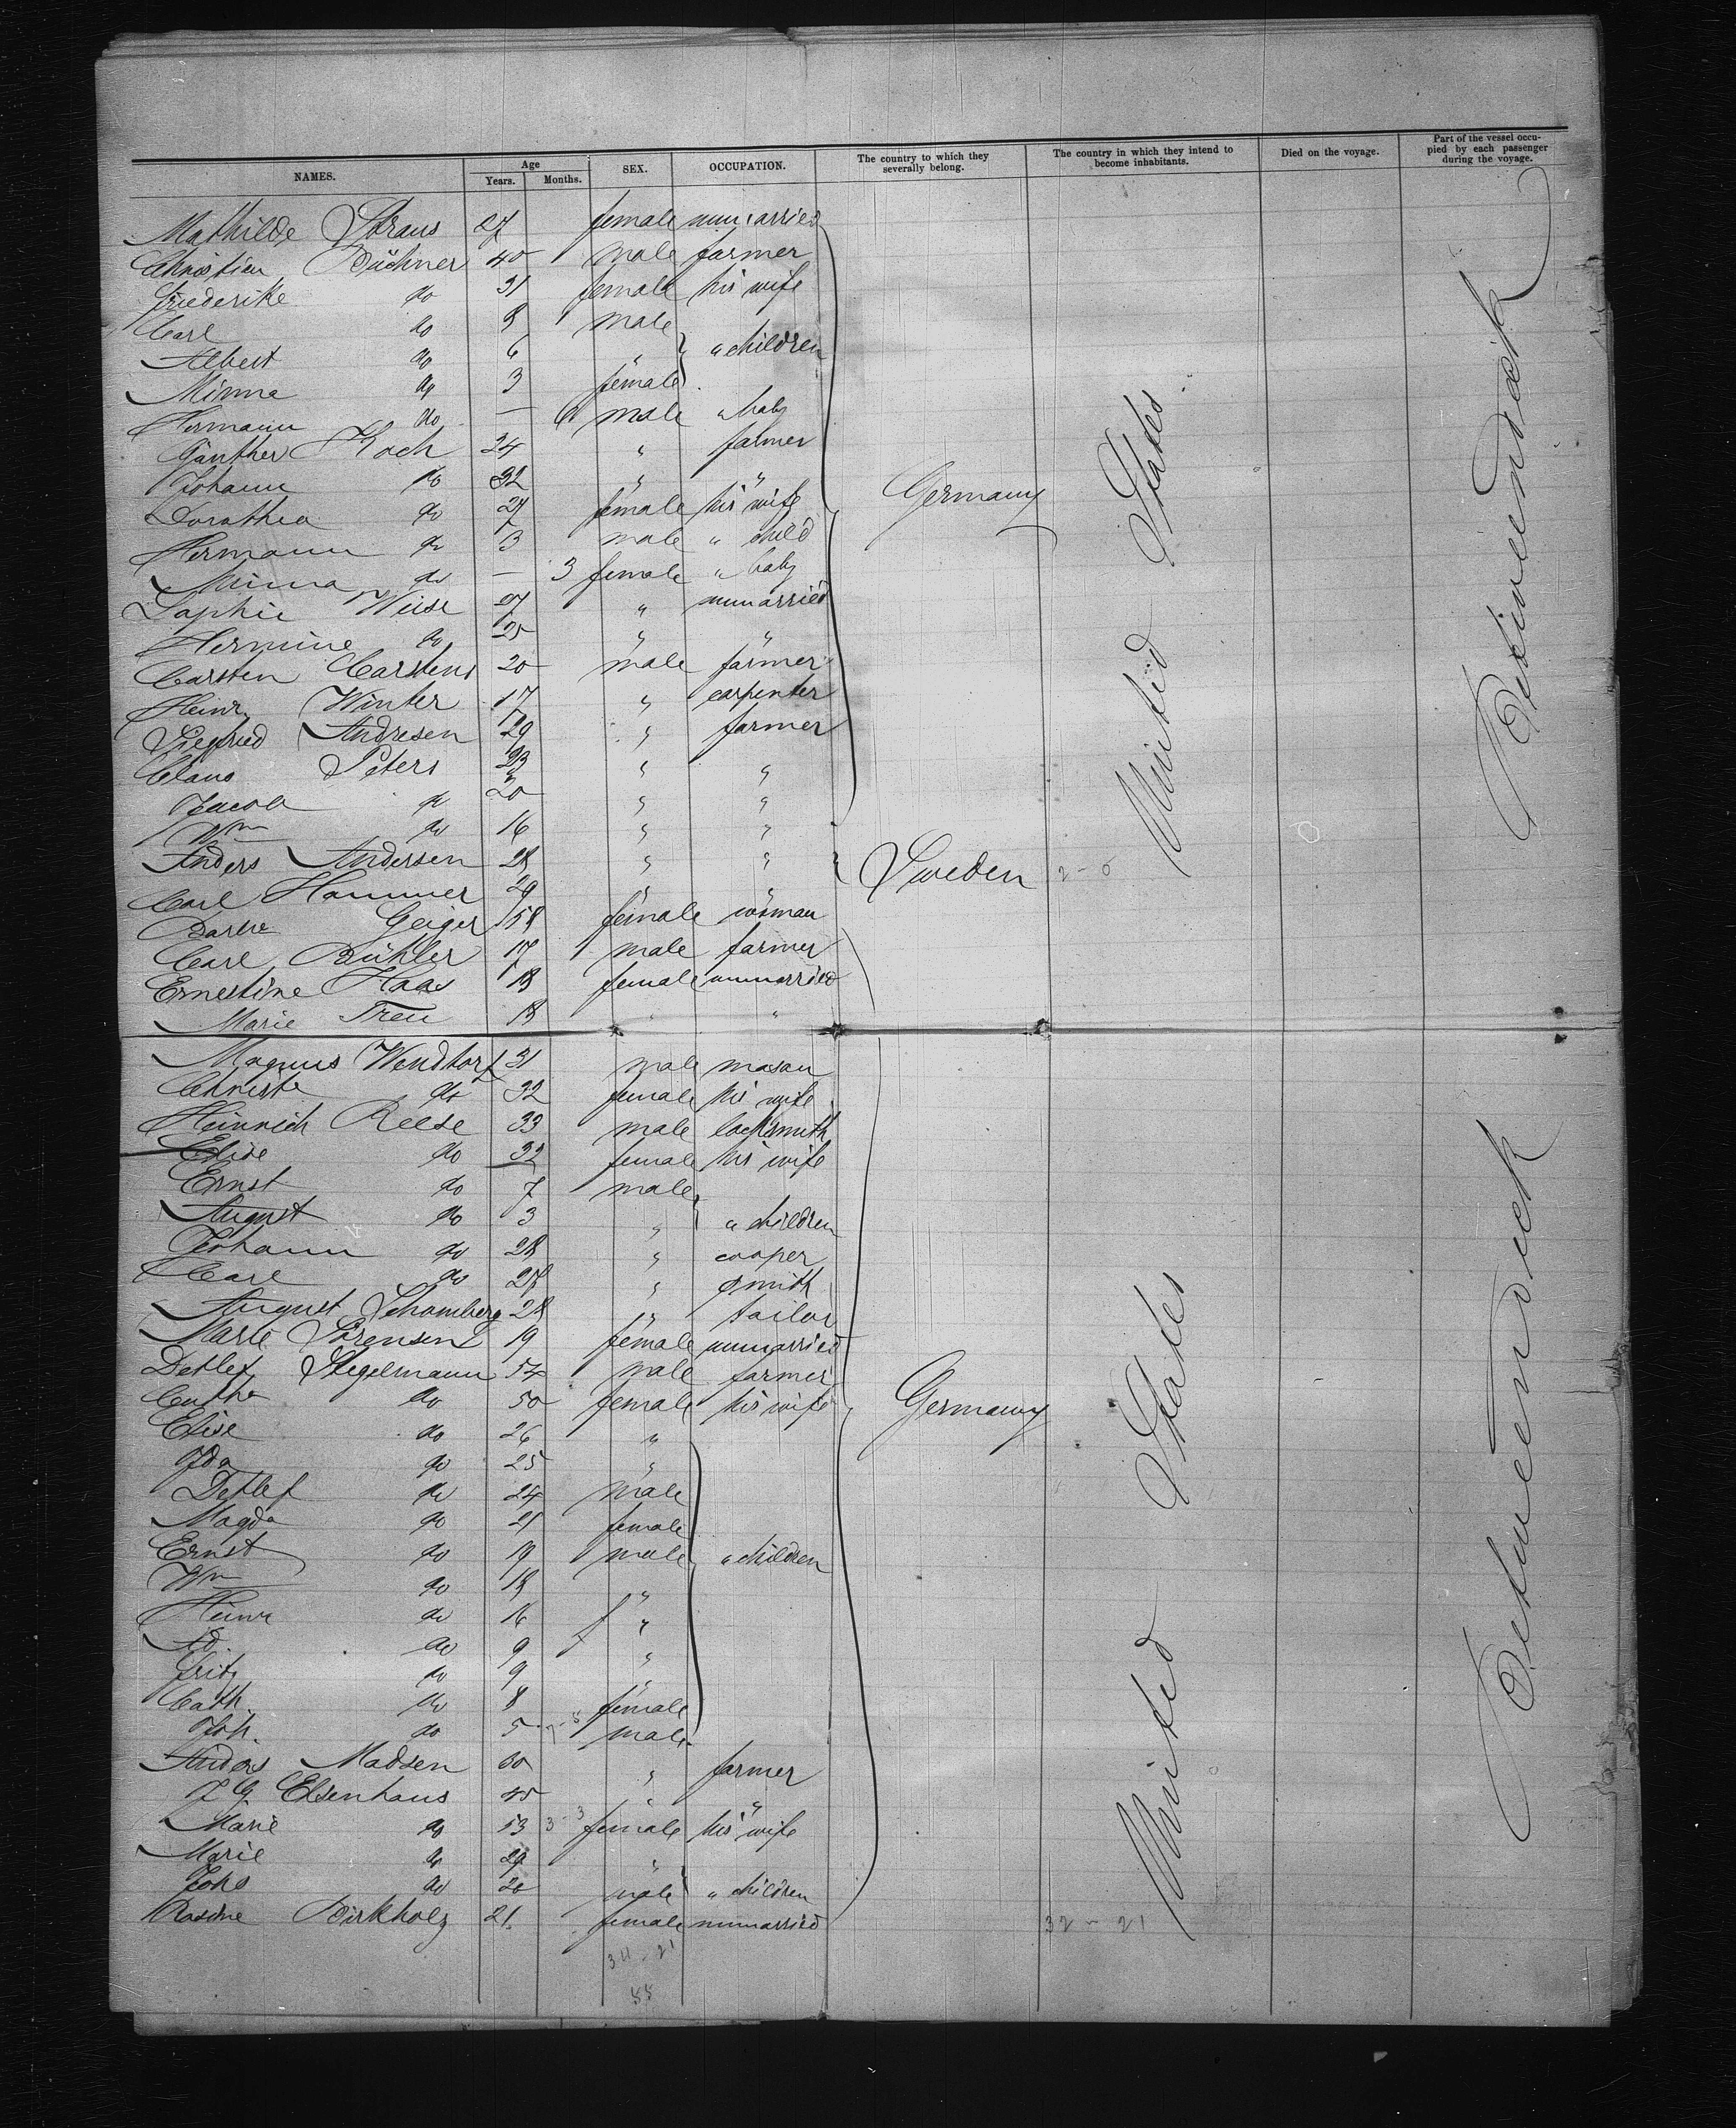 NAMES. Age Years. Months. SEX. OCCUPATION. The country to which they severally belong. The country in which they intend to become inhabitants. Died on the voyage. Part of the vessel occupied by each passenger during the voyage.
Mathilde Straus 27 female unmarried
Christian Büchner 40 male farmer
Friederike do 31 female his wife
Carl do 8 male
Albert do 6 " " children
Minna do 3 female
Hermann do — 6 male " baby
Günther Koch 24 " farmer
Johann do 32 " "
Dorothea do 27 female his wife
Germany
Hermann do 3 male " child
Minna do — 3 female " baby
Sophie Weise 27 " unmarried
Hermine do 25 " "
Carsten Carstens 20 male farmer
Heinr. Winter 17 " carpenter
Siegfried Andresen 29 " farmer
Claus Peters 23 " "
Jacob do 20 " "
Wm do 16 " "
United States
Betweendeck
Anders Andersen 28 " "
Sweden 2-0
Carl Hammer 29 " "
Barbe Geiger 58 female woman
Carl Bühler 17 male farmer
Ernestine Haas 18 female unmarried
Marie Treu 18 " "
Magnus Wendtorf 31 male mason
Christe do 32 female his wife
Heinrich Reese 33 male locksmith
Elise do 32 female his wife
Ernst do 7 male
August do 3 " " children
Johann do 28 " cooper
Carl do 27 " smith
August Schomberg 28 " tailor
Marie Sörensen 19 female unmarried
Detlef Stegelmann 54 male farmer
do 50 female his wife
Germany
Elise do 26 "
Ida do 25 "
Detlef do 24 male
Magda do 21 female
Ernst do 19 male " children
Wm do 18 "
Heinr do 16 "
Ad. do 9 "
Fritz do 9 "
Cath. do 8 female
Joh. do 5 male
Anders Madsen 30 " farmer
J G Elsenhans 45 " "
Marie do 53 3-3 female his wife
Marie do 29 "
Johs do 20 male " children
Rosine Birkholz 21. female unmarried
United States
Betweendeck
32-21
34-21
55